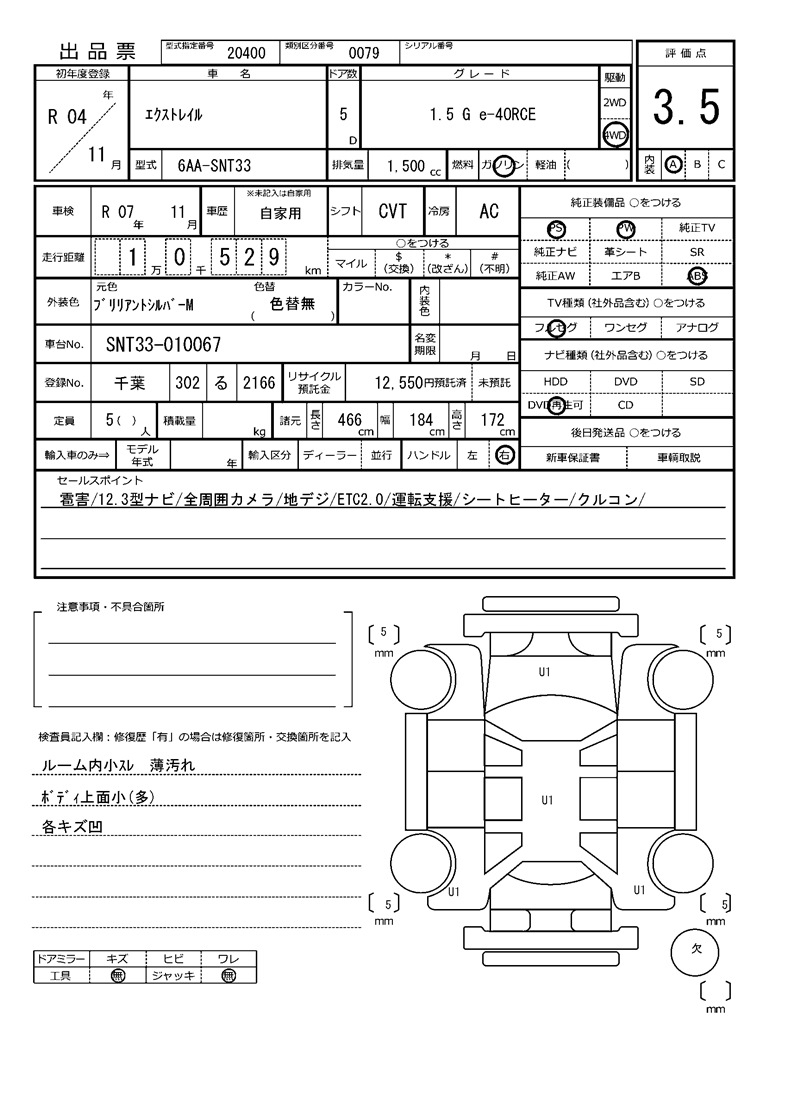 出品票 型式指定番号 20400 類別区分番号 0079 シリアル番号
評価点
3.5
内装 A B C
初年度登録 車名 ドア数 グレード 駆動
R 04 年 11 月 エクストレイル 5 D 1.5 G e-4ORCE 2WD 4WD
型式 6AA-SNT33 排気量 1,500 cc 燃料 ガソリン 軽油 ( )
車検 R 07 年 11 月 車歴 ※未記入は自家用 自家用 シフト CVT 冷房 AC
走行距離 1 万 0 千 5 2 9 km ○をつける
マイル $(交換) *(改ざん) #(不明)
外装色 元色 ブリリアントシルバーM 色替 ( 色替無 ) カラーNo. 内装色
車台No. SNT33-010067 名変期限 月 日
登録No. 千葉 302 る 2166 リサイクル預託金 12,550円預託済 未預託
定員 5( ) 人 積載量 kg 諸元 長さ 466 cm 幅 184 cm 高さ 172 cm
輸入車のみ⇒ モデル年式 年 輸入区分 ディーラー 並行 ハンドル 左 右
純正装備品 ○をつける
PS PW 純正TV
純正ナビ 革シート SR
純正AW エアB ABS
TV種類(社外品含む)○をつける
フルセグ ワンセグ アナログ
ナビ種類(社外品含む)○をつける
HDD DVD SD
DVD再生可 CD
後日発送品 ○をつける
新車保証書 車輌取説
セールスポイント
雹害/12.3型ナビ/全周囲カメラ/地デジ/ETC2.0/運転支援/シートヒーター/クルコン/
注意事項・不具合箇所
検査員記入欄:修復歴「有」の場合は修復箇所・交換箇所を記入
ルーム内小スレ 薄汚れ
ボディ上面小(多)
各キズ凹
ドアミラー キズ ヒビ ワレ
工具 無 ジャッキ 無
5 mm
5 mm
U1
U1
U1
U1
5 mm
5 mm
欠
mm